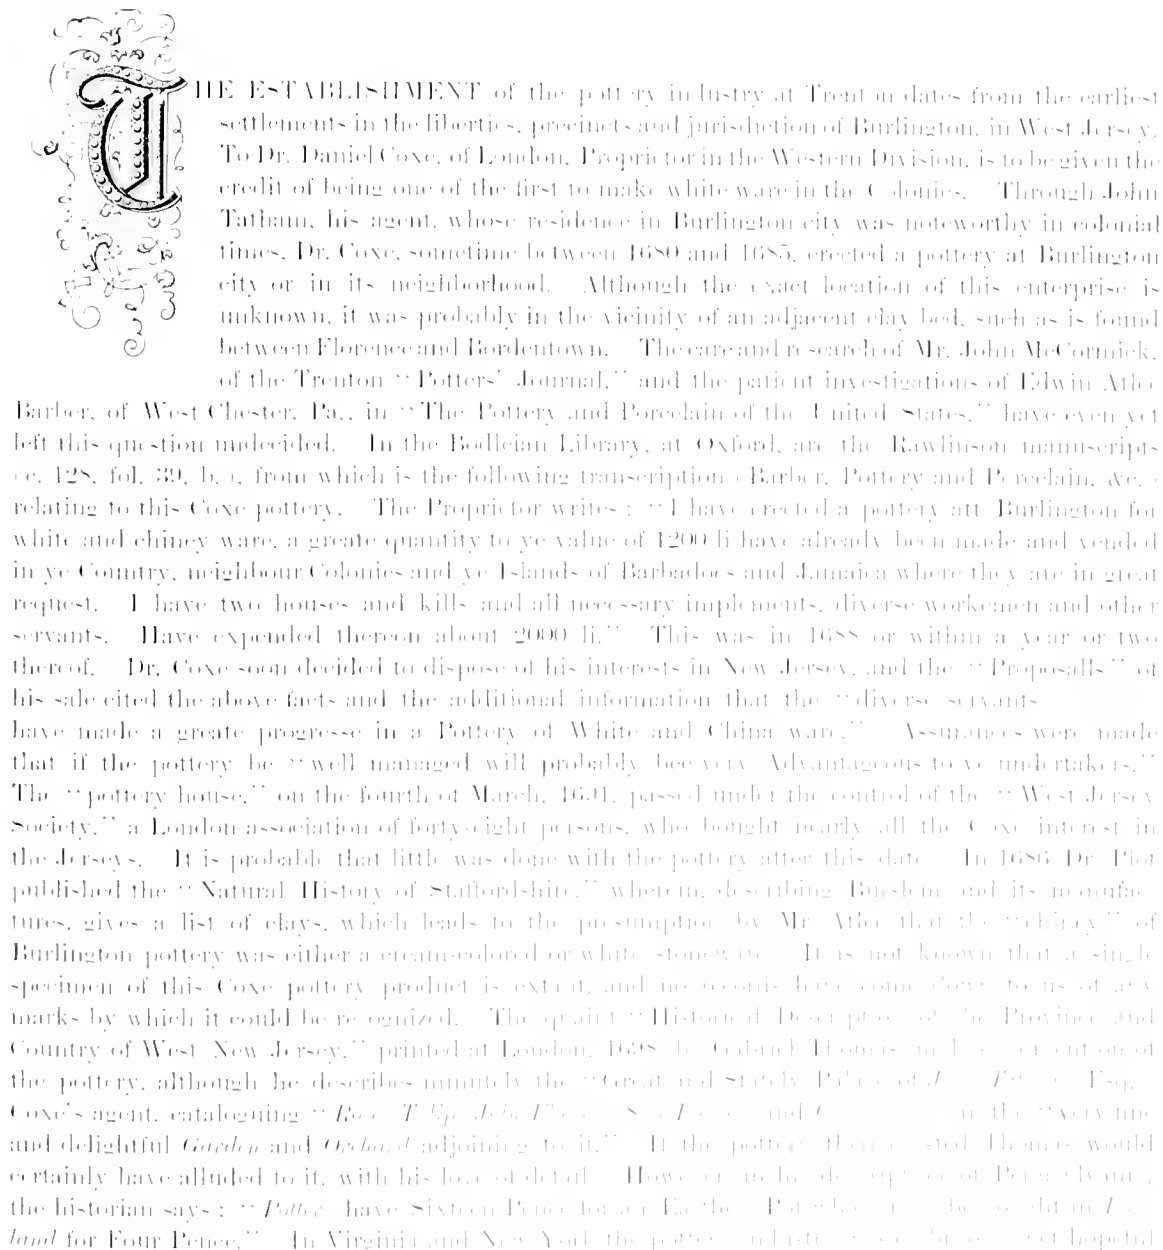 THE ESTABLISHMENT of the pottery industry at Trenton dates from the earliest
settlements in the liberties, precincts and jurisdiction of Burlington, in West Jersey.
To Dr. Daniel Coxe, of London, Proprietor in the Western Division, is to be given the
credit of being one of the first to make white ware in the Colonies. Through John
Tatham, his agent, whose residence in Burlington city was noteworthy in colonial
times, Dr. Coxe, sometime between 1680 and 1685, erected a pottery at Burlington
city or in its neighborhood. Although the exact location of this enterprise is
unknown, it was probably in the vicinity of an adjacent clay bed, such as is found
between Florence and Bordentown. The care and research of Mr. John McCormick,
of the Trenton "Potters' Journal," and the patient investigations of Edwin Atlee
Barber, of West Chester, Pa., in "The Pottery and Porcelain of the United States," have even yet
left this question undecided. In the Bodleian Library, at Oxford, are the Rawlinson manuscripts
(c. 128, fol. 39, b.), from which is the following transcription (Barber, Pottery and Porcelain, &c.)
relating to this Coxe pottery. The Proprietor writes: "I have erected a pottery att Burlington for
white and chiney ware, a greate quantity to ye value of 1200 li have already been made and vended
in ye Country, neighbour Colonies and ye Islands of Barbadoes and Jamaica where they are in great
request. I have two houses and kills and all necessary implements, diverse workemen and other
servants. Have expended thereon about 2000 li." This was in 1688 or within a year or two
thereof. Dr. Coxe soon decided to dispose of his interests in New Jersey, and the "Proposalls" of
his sale cited the above facts and the additional information that the "diverse servants
have made a greate progresse in a Pottery of White and China ware." Assurances were made
that if the pottery be "well managed will probably bee very Advantageous to ye undertakers."
The "pottery house," on the fourth of March, 1691, passed under the control of the "West Jersey
Society," a London association of forty-eight persons, who bought nearly all the Coxe interest in
the Jerseys. It is probable that little was done with the pottery after this date. In 1686 Dr. Plot
published the "Natural History of Staffordshire," wherein, describing Burslem and its manufac-
tures, gives a list of clays, which leads to the presumption by Mr. Atlee that the "chiney" of
Burlington pottery was either a cream-colored or white stoneware. It is not known that a single
specimen of this Coxe pottery product is extant, and no records have come down to us of any
marks by which it could be recognized. The quaint "Historical Description of the Province and
Country of West New Jersey," printed at London, 1698, by Gabriel Thomas, of
the pottery, although he describes minutely the "Great and Stately Palace of Esq.,
Coxe's agent, cataloguing and the "very fine
and delightful Garden and Orchard adjoining to it." If the pottery then existed Thomas would
certainly have alluded to it, with his love of detail. However, in his description of Pennsylvania,
the historian says: "Potters have Sixteen Pence for an
land for Four Pence." In Virginia and New York the pottery industry hopeful